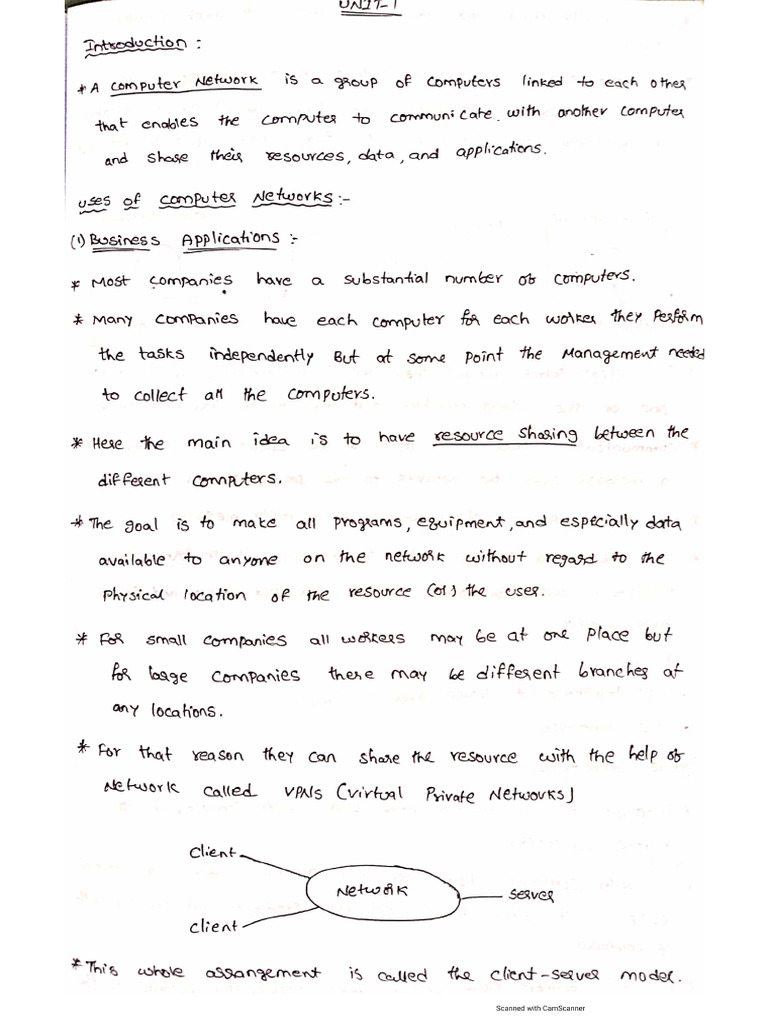 UNIT-1
Introduction :
* A computer Network is a group of computers linked to each other
that enables the computer to communicate with another computer
and share their resources, data, and applications.
uses of computer Networks :-
(1) Business Applications :-
* Most companies have a substantial number of computers.
* Many companies have each computer for each worker they perform
the tasks independently But at some point the Management needed
to collect all the computers.
* Here the main idea is to have resource sharing between the
different computers.
* The goal is to make all programs, equipment, and especially data
available to anyone on the network without regard to the
physical location of the resource (or) the user.
* For small companies all workers may be at one place but
for large companies there may be different branches at
any locations.
* For that reason they can share the resource with the help of
Network called VPNs (Virtual Private Networks)
client
Network
server
client
* This whole arrangement is called the client-server model.
Scanned with CamScanner